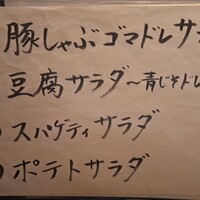 豚しゃぶゴマドレサ
豆腐サラダ〜青じそドレ
スパゲティサラダ
ポテトサラダ